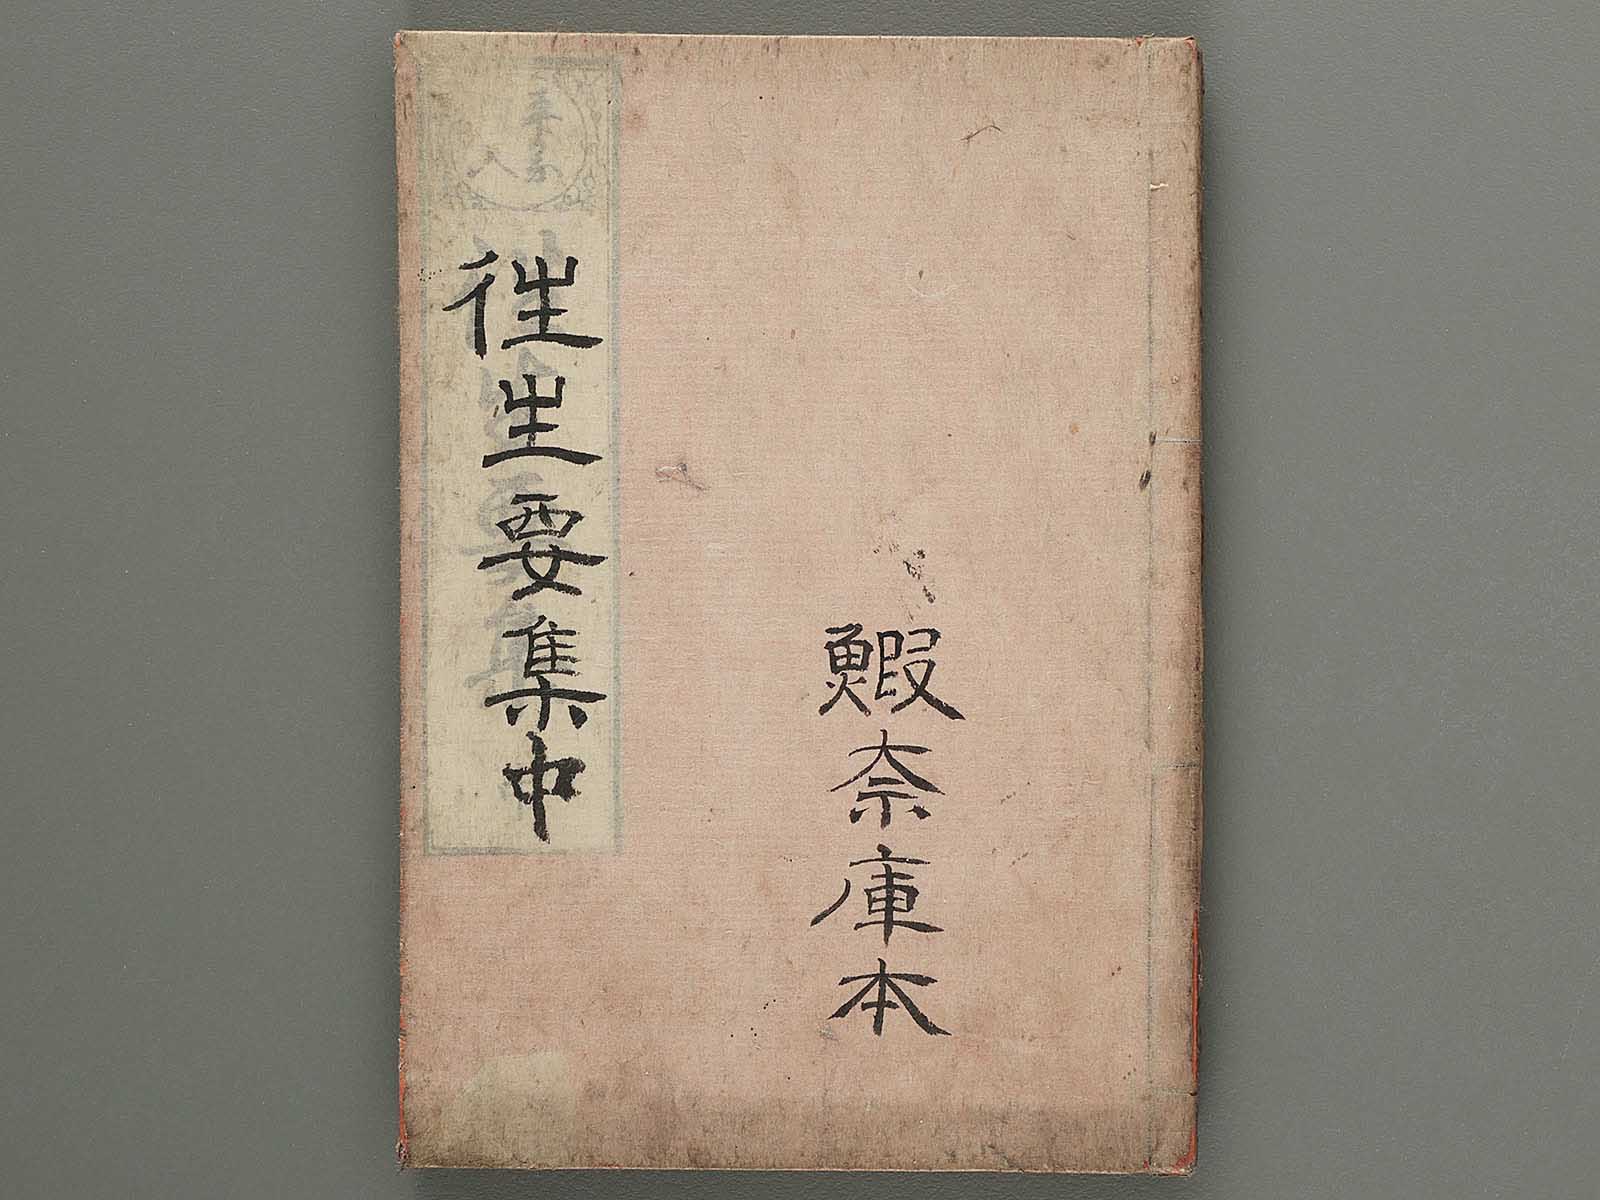 鰕奈庫本
徃生要集中